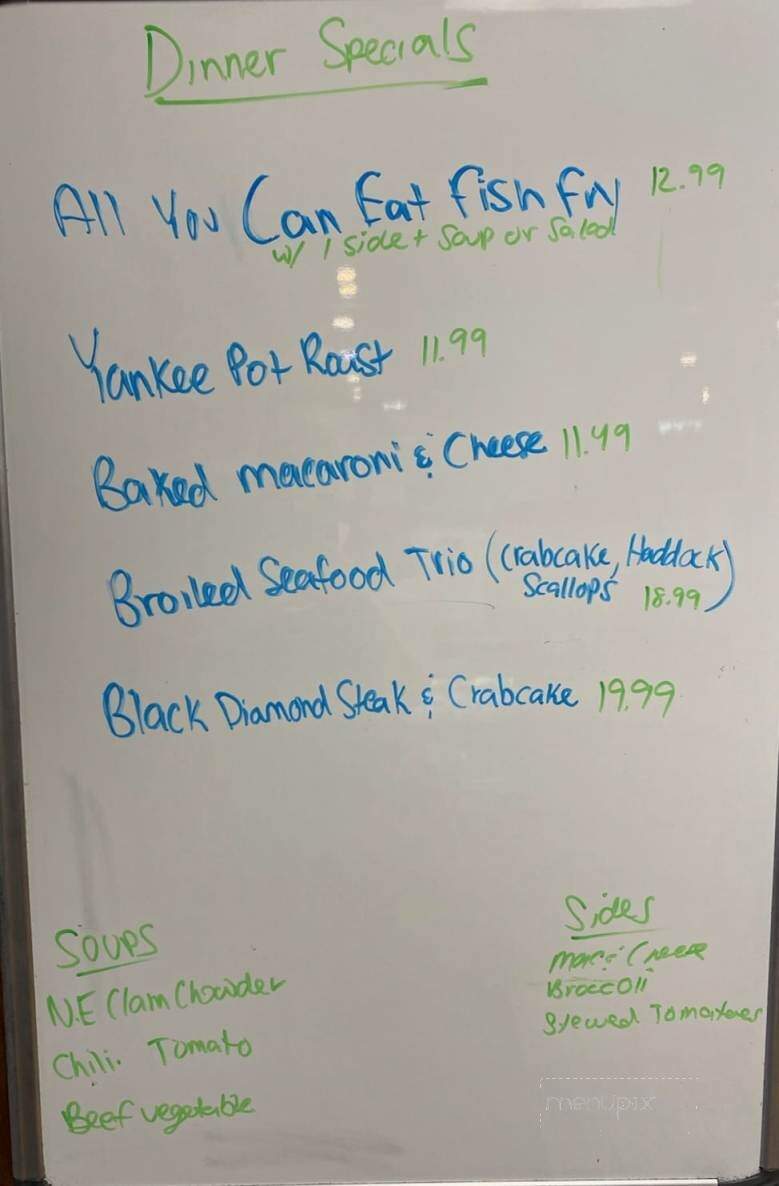 Dinner Specials
All You Can Eat Fish Fry 12.99
w/ 1 side + Soup or Salad
Yankee Pot Roast 11.99
Baked macaroni & Cheese 11.49
Broiled Seafood Trio (Crabcake, Haddock)
Scallops 18.99
Black Diamond Steak & Crabcake 19.99
Soups
N.E Clam Chowder
Chili. Tomato
Beef vegetable
Sides
Mac & Cheese
Broccoli
Stewed Tomatoes
menupix